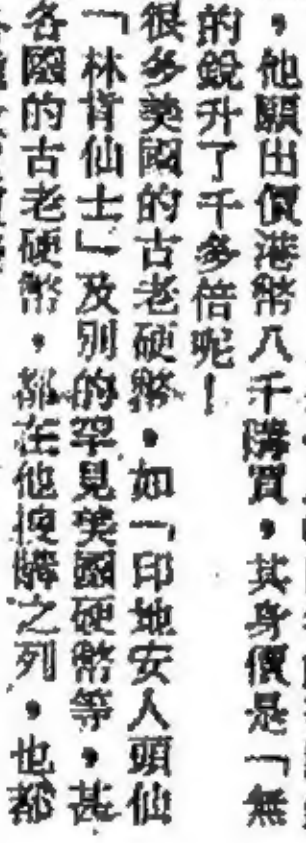 ，他願出價港幣八千購買，其身價是「無
的銳升了千多倍呢！
很多美國的古老硬幣，如「印地安人頭仙
「林肯仙士」及別的罕見美國硬幣等，甚
各國的古老硬幣，都在他搜購之列，也都